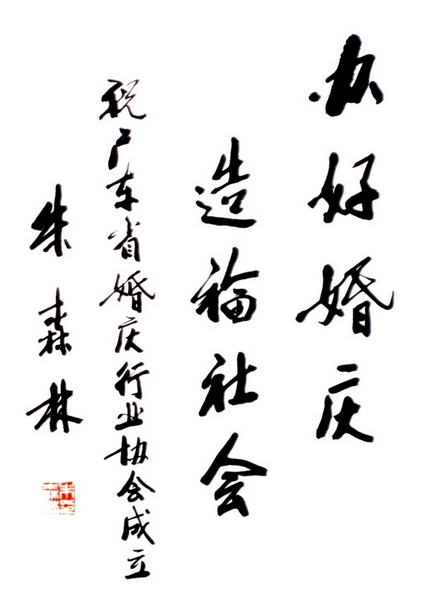 办好婚庆
造福社会
祝广东省婚庆行业协会成立
朱森林